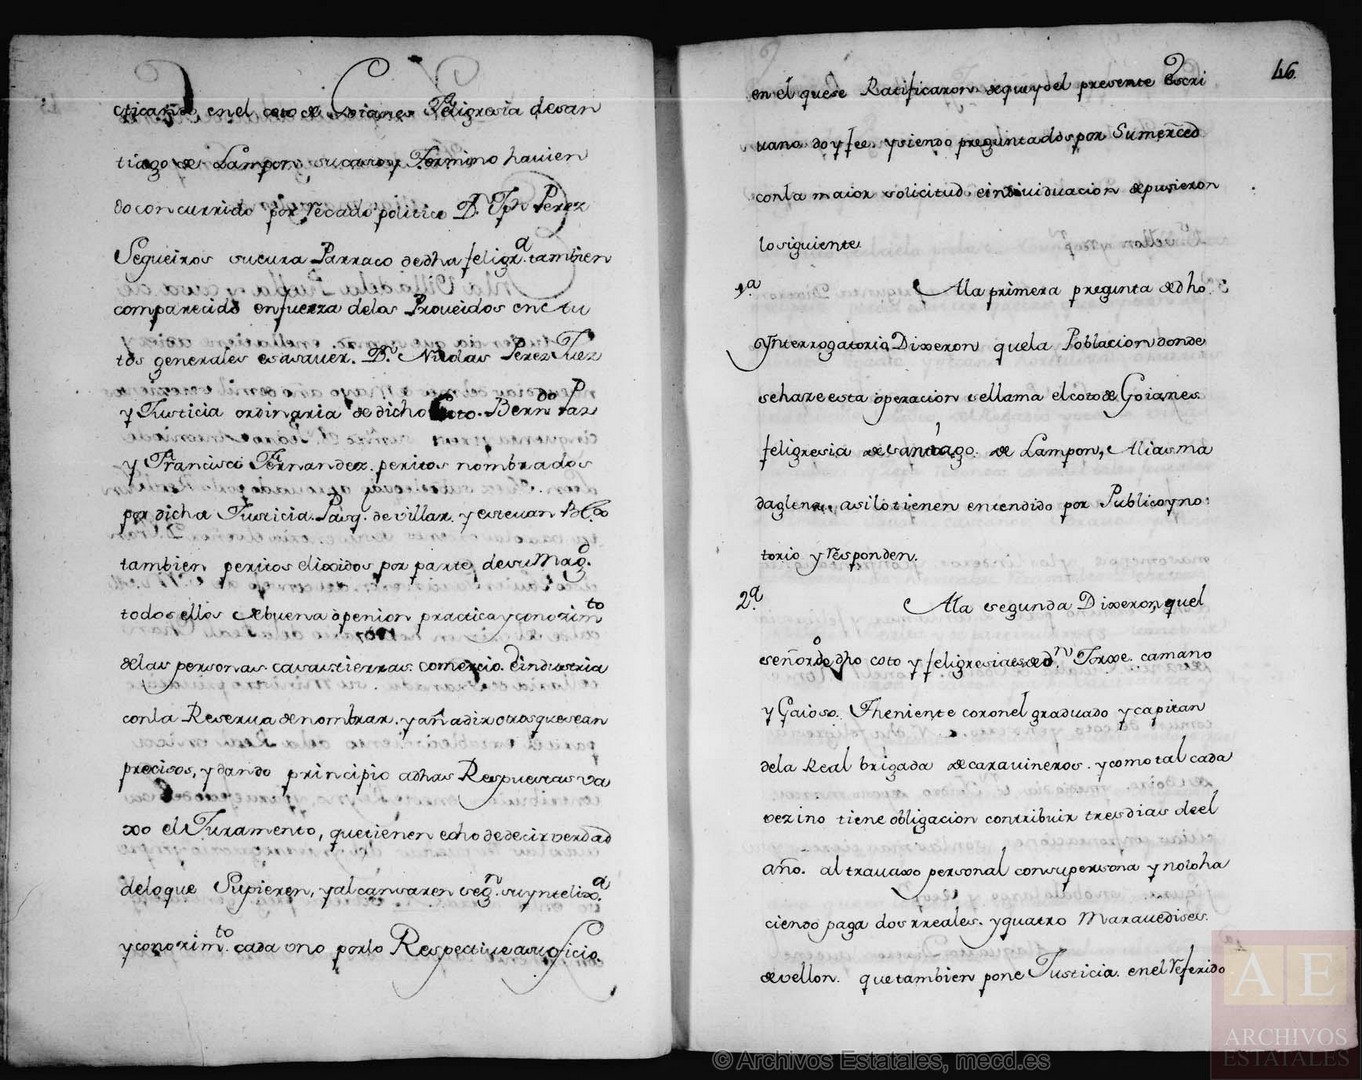 cticando, en el coto de Goianes Feligresia de san
tiago de Lampon, su coto y Termino havien
do concurrido por recado politico Dn. Jph Perez
Segueiros su cura Parraco de dha feligra. tambien
comparecido en fuerza de los Proveidos en etu
tos generales es asaver. Dn. Nicolas Perez Juez
y Justicia ordinaria de dicho Coto. Berndo Paz
y Francisco Fernandez. peritos nombrados
por dicha Justicia. Pasql. de villar. y estevan Blco
tambien peritos elixidos por parte de su Magd.
todos ellos de buena openion practica y conozimto
de las personas casas tierras. comercio. e industria
con la Reserva de nombrar. y añadir otros que sean
precisos, y dando principio a dhas Respuestas va
xo el Juramento, que tienen echo de decir verdad
de lo que Supieren, y alcansaren segn. su yntelixa
y conozimto. cada uno por lo Respective a su oficio
46.
en el que se Ratificaron de que yo el presente escri
uano doy fee y siendo preguntados por Sumerced
con la maior solicitud e individuacion depusieron
lo siguiente
1a A la primera pregunta de dho.
Ynterrogatorio Dixeron que la Poblacion donde
se haze esta operacion se llama el coto de Goianes
feligresia de santiago. de Lampon, Alias ma
daglena, asi lo tienen entendido por Publico y no:
torio y responden.
2a. A la segunda Dixeron, que el
es eñorio de dho coto y feligresia es de dn. Jorxe. camano
y Gaioso. Theniente coronel graduado y capitan
de la Real brigada de caravineros. y como tal cada
vezino tiene obligacion contribuir tres dias de el
año. al travaxo personal con su persona y no lo ha
ciendo paga dos rreales. y quatro Maravedises.
de vellon. que tambien pone Justicia. en el referido
© Archivos Estatales, mecd.es
AE
ARCHIVOS
ESTATALES